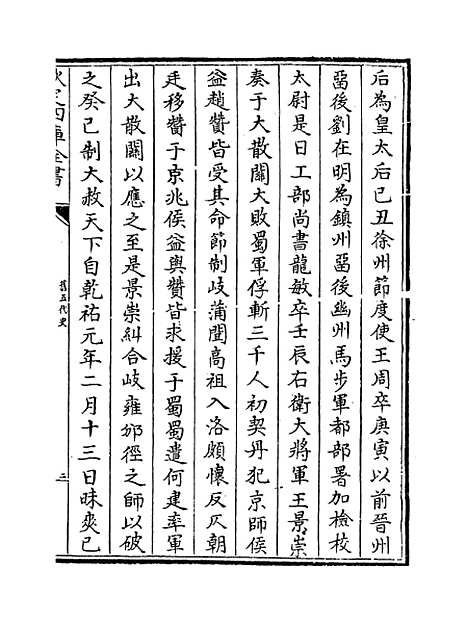 后為皇太后己丑徐州節度使王周卒庚寅以前晉州
畱後劉在明為鎮州畱後幽州馬步軍都部署加檢校
太尉是日工部尚書龍敏卒壬辰右衛大將軍王景崇
奏于大散關大敗蜀軍俘斬三千人初契丹犯京師侯
益趙贊皆受其命節制岐蒲聞高祖入洛頗懷反仄朝
廷移贊于京兆侯益與贊皆求援于蜀蜀遣何建率軍
出大散關以應之至是景崇糾合岐雍邠徑之師以破
之癸巳制大赦天下自乾祐元年二月十三日昧爽已
欽定四庫全書
舊五代史
三